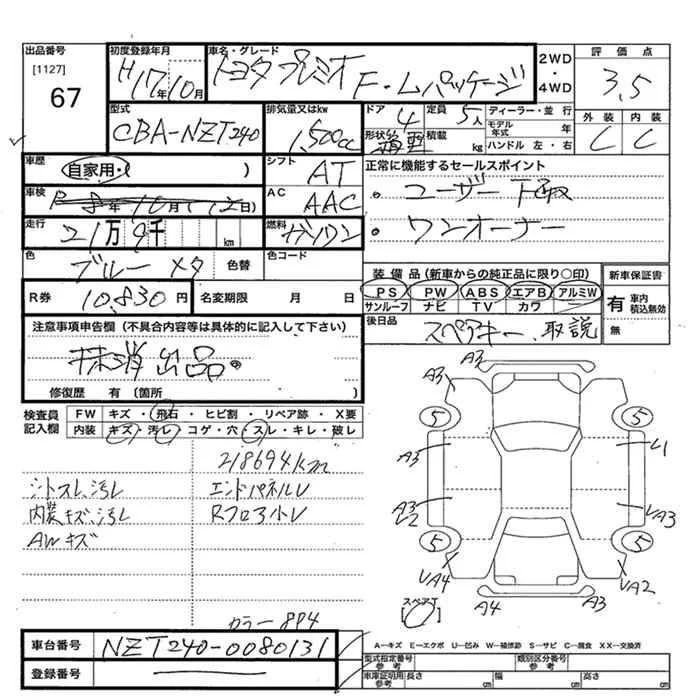 出品番号 [1127] 67
初度登録年月 H17年10月
車名・グレード トヨタ プレミオ F・Lパッケージ
2WD・4WD
評価点 3.5
型式 CBA-NZT240
排気量又はkw 1,500cc
ドア 4 定員 5人
形状 積載 kg
ディーラー・並行
モデル年式 年
ハンドル 左・右
外装 C 内装 C
車歴 自家用・( )
シフト AT
正常に機能するセールスポイント
車検 R 8年10月12日)
AC AAC
・ユーザー下取
走行 21万9千 km
燃料 ガソリン
・ワンオーナー
色 ブルーメタ 色替
色コード
R券 10,830円 名変期限 月 日
装備品(新車からの純正品に限り○印)
PS PW ABS エアB アルミW
サンルーフ ナビ TV カワ
新車保証書
有 車内積込無効
無
後日品 スペアキー、取説
注意事項申告欄(不具合内容等は具体的に記入して下さい)
抹消出品。
修復歴 有(箇所
検査員記入欄
FW キズ・飛石・ヒビ割・リペア跡・X要
内装 キズ・汚レ・コゲ・穴・スレ・キレ・破レ
218694km
シートスレ、汚レ エンドパネルU
内装キズ、汚レ Rフロア小U
AWキズ
カラー 8P4
A3 A3
5 5
A3 U1
A3 U2 UA3
5 5
UA4 UA2
スペアT
A4 A3
車台番号 NZT240-0080131
登録番号
A―キズ E―エクボ U―凹み W―補修跡 S―サビ C―腐食 XX―交換済
型式指定番号 参考 類別区分番号 参考
車庫証明用 参考 長さ cm 幅 cm 高さ cm